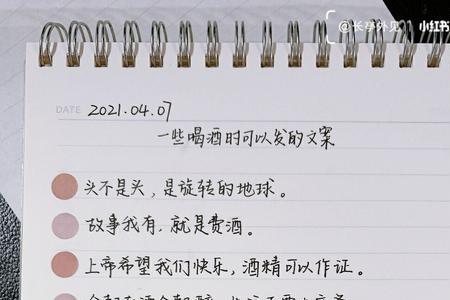 @长亭外见 小红书
DATE 2021.04.07
一些喝酒时可以发的文案
头不是头，是旋转的地球。
故事我有，就是费酒。
上帝希望我们快乐，酒精可以作证。